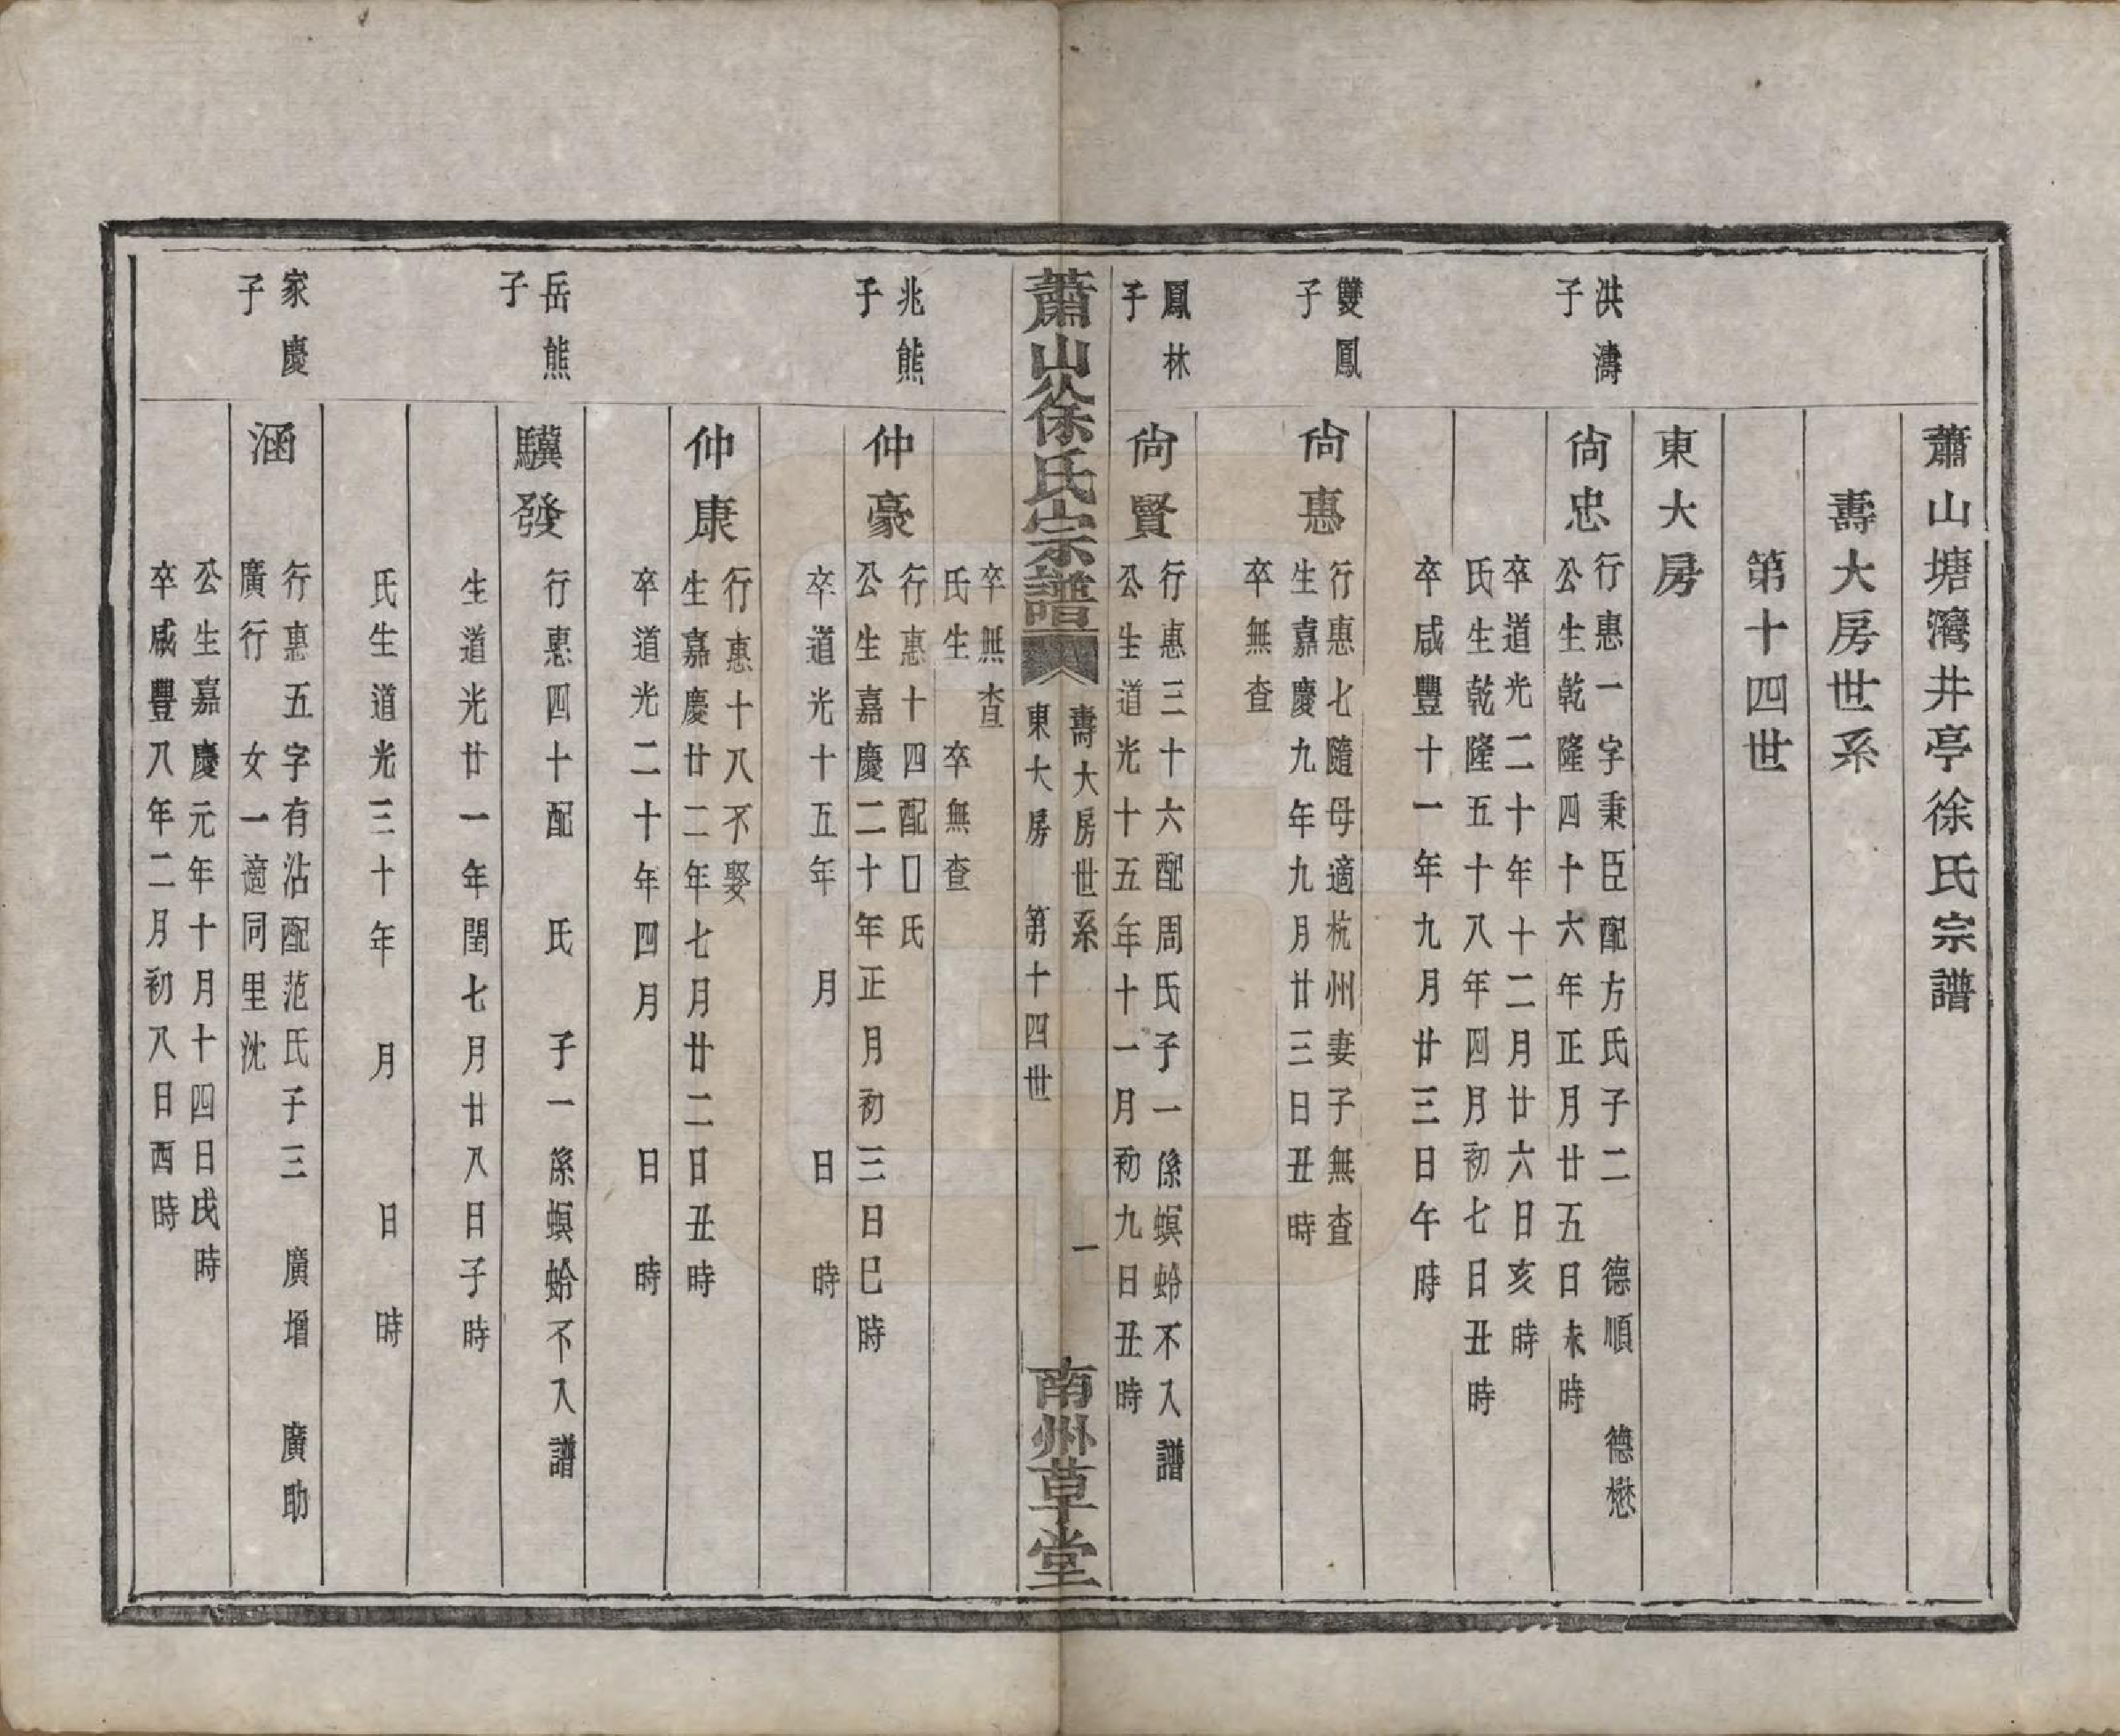 蕭山塘灣井亭徐氏宗譜
壽大房世系
第十四世
東大房
洪濤
子
尙忠
行惠一字秉臣配方氏子二 德順 德懋
公生乾隆四十六年正月廿五日未時
卒道光二十年十二月廿六日亥時
氏生乾隆五十八年四月初七日丑時
卒咸豐十一年九月廿三日午時
雙鳳
子
尙惠
行惠七隨母適杭州妻子無查
生嘉慶九年九月廿三日丑時
卒無查
鳳林
子
尙賢
行惠三十六配周氏子一係螟蛉不入譜
公生道光十五年十一月初九日丑時
蕭山徐氏宗譜
壽大房世系 一
東大房 第十四世
南州草堂
卒無查
氏生 卒無查
兆熊
子
仲豪
行惠十四配囗氏
公生嘉慶二十年正月初三日巳時
卒道光十五年 月 日 時
仲康
行惠十八不娶
生嘉慶廿二年七月廿二日丑時
卒道光二十年四月 日 時
岳熊
子
驥發
行惠四十配 氏 子一係螟蛉不入譜
生道光廿一年閏七月廿八日子時
氏生道光三十年 月 日 時
家慶
子
涵
行惠五字有沾配范氏子三 廣增 廣助
廣行 女一適同里沈
公生嘉慶元年十月十四日戌時
卒咸豐八年二月初八日酉時